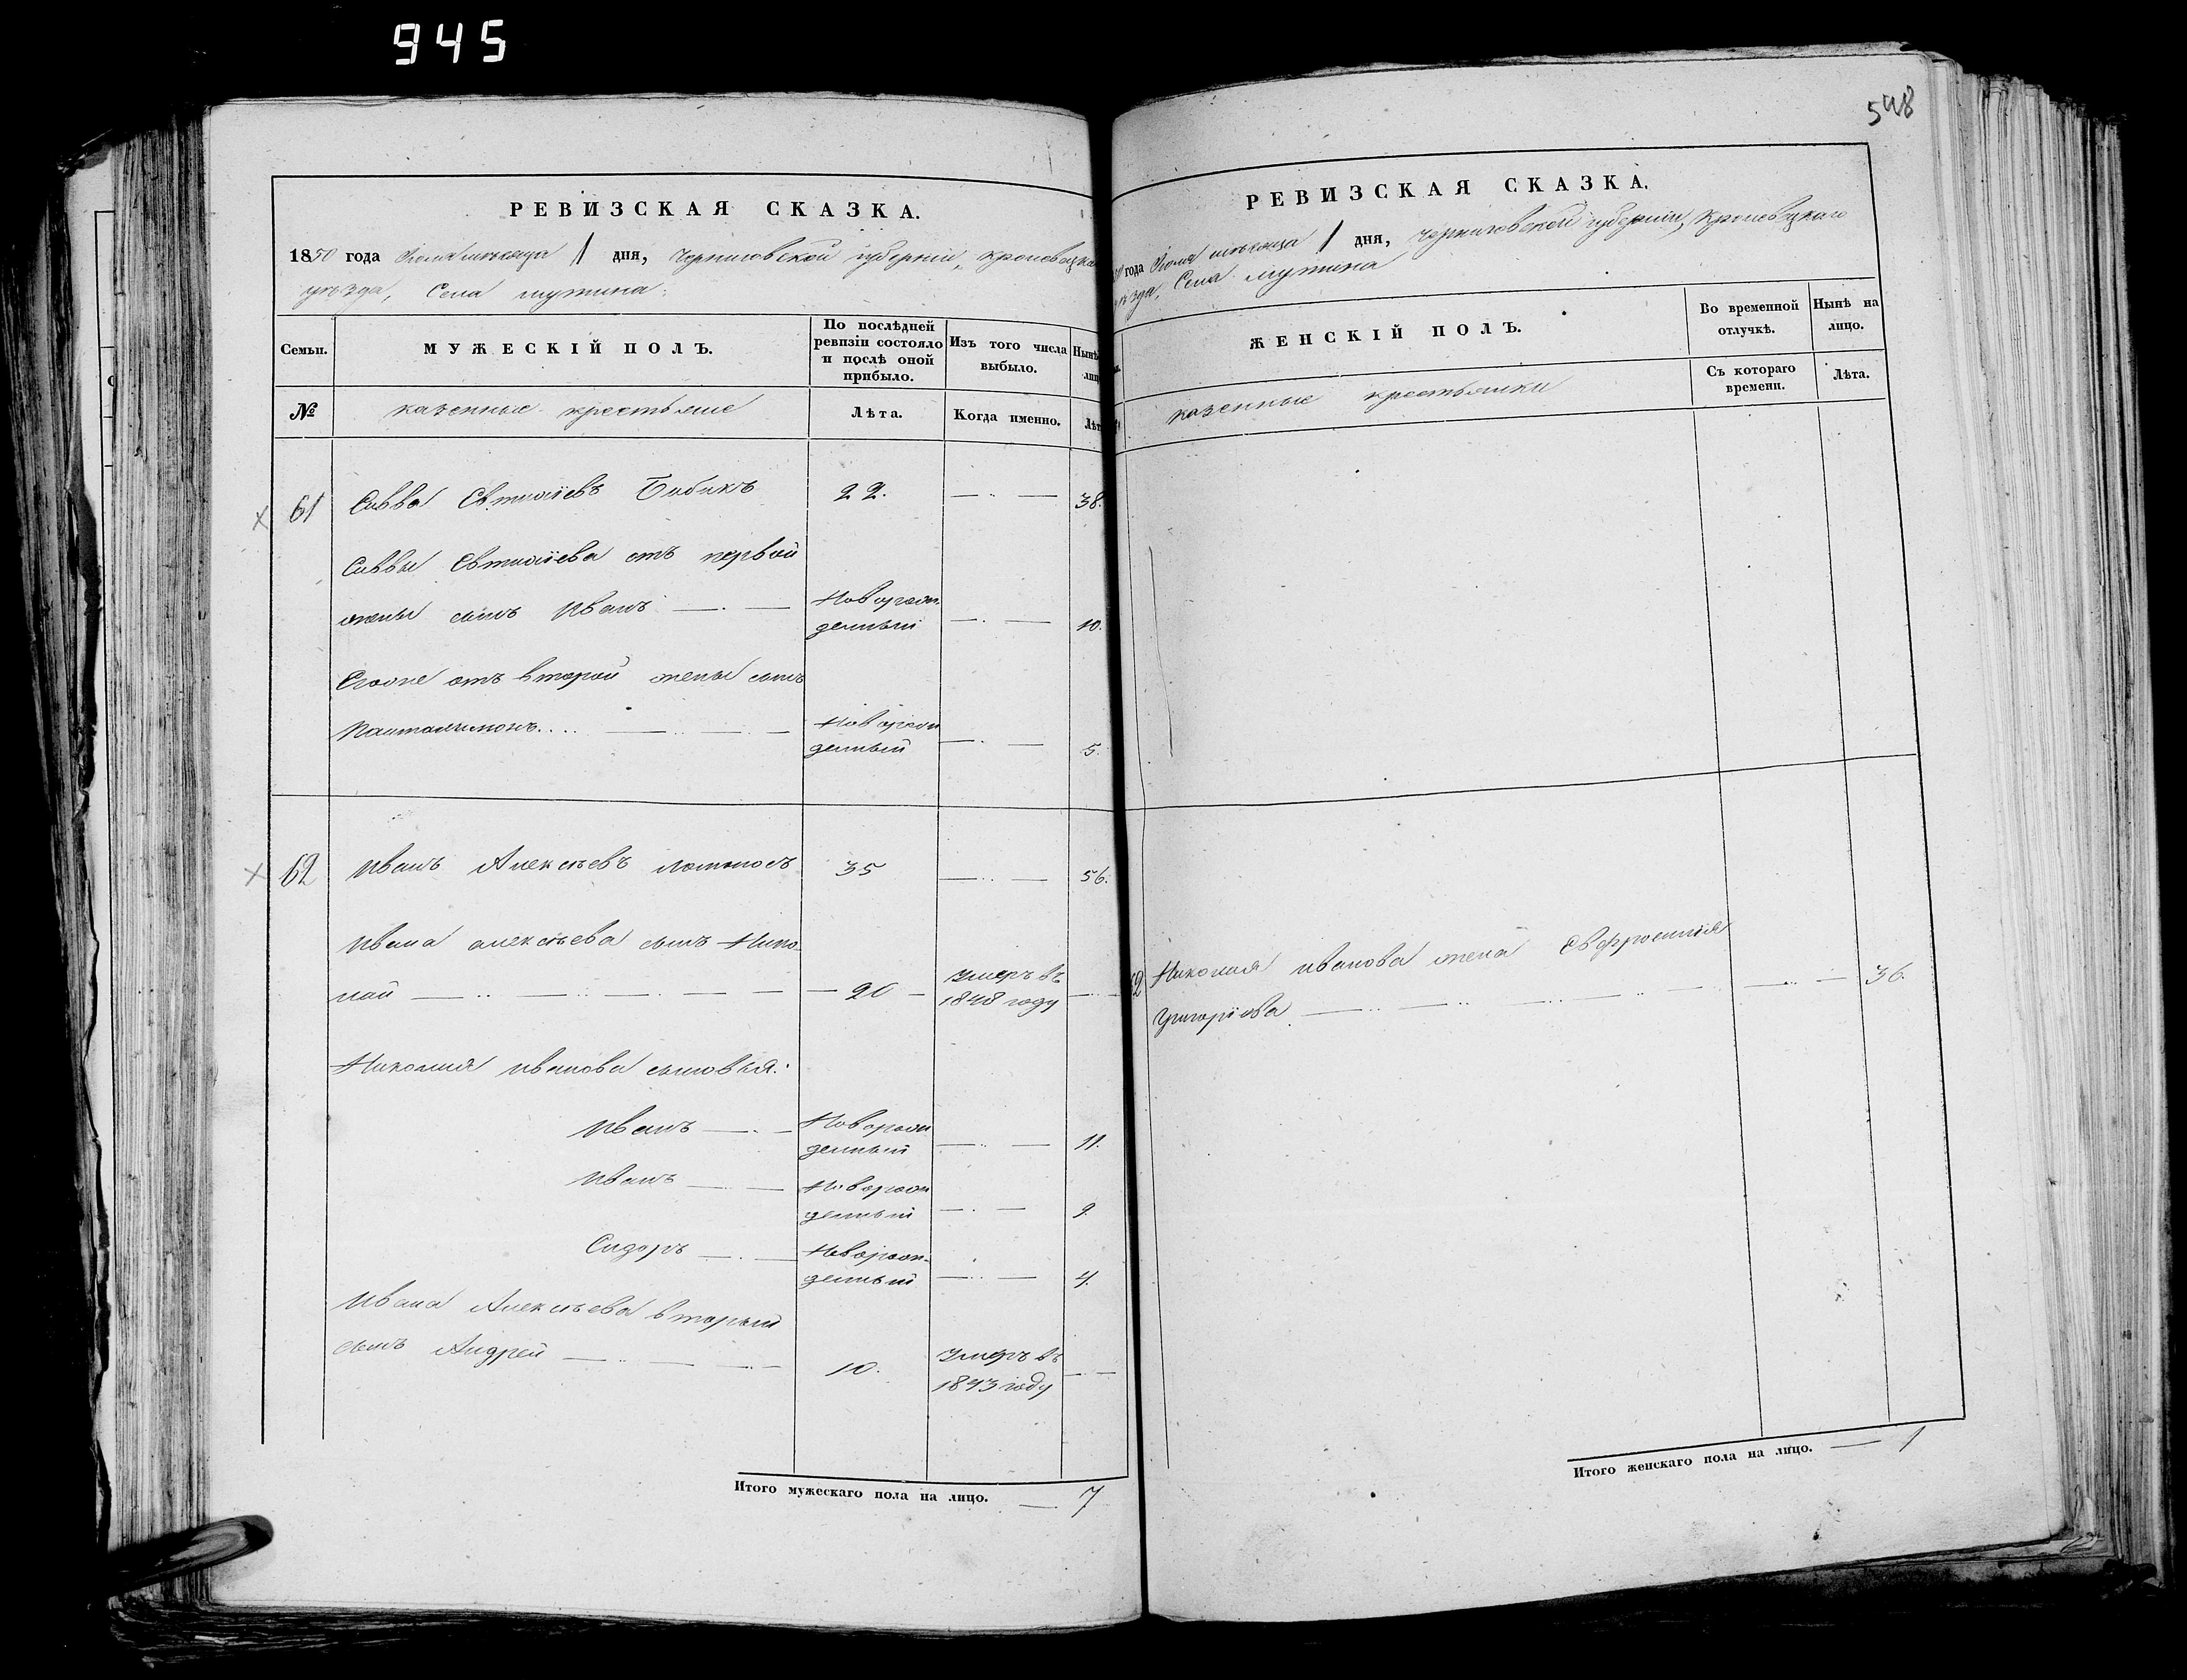 945
548
РЕВИЗСКАЯ СКАЗКА.
1850 года Июля месяца 1 дня, Черниговской губерніи, Кролевецка
уѣзда, Села Мутина.
Семьи.
МУЖЕСКІЙ ПОЛЪ.
По послѣдней ревизіи состояло и послѣ оной прибыло.
Изъ того числа выбыло.
Нынѣ
лиц
№
казенные крестьяне
Лѣта.
Когда именно.
Лѣт
61 Савва Евтихіевъ Бибикъ 22. 38.
Саввы Евтихіева отъ первой
жены сынъ Иванъ Новорожденный 10.
Егоже отъ второй жены сынъ
Пантелимонъ Новорожденный 5.
62 Иванъ Алексѣевъ 35 56.
Ивана Алексѣева сынъ Нико
лай 20 Умеръ въ 1848 году
Николая Иванова сыновья:
Иванъ Новорожденный 11.
Иванъ Новорожденный 9.
Сидоръ Новорожденный 4.
Ивана Алексѣева вторый
сынъ Андрей 10. Умеръ въ 1843 году
Итого мужескаго пола на лицо. 7
РЕВИЗСКАЯ СКАЗКА.
года Июля месяца 1 дня, Черниговской губерніи, Кролевецкаго
уѣзда, Села Мутина
ЖЕНСКІЙ ПОЛЪ.
Во временной отлучкѣ.
Нынѣ на лицо.
казенные крестьянки
Съ котораго времени.
Лѣта.
62 Николая Иванова жена Евфросинія
Григоріева 36.
Итого женскаго пола на лицо. 1